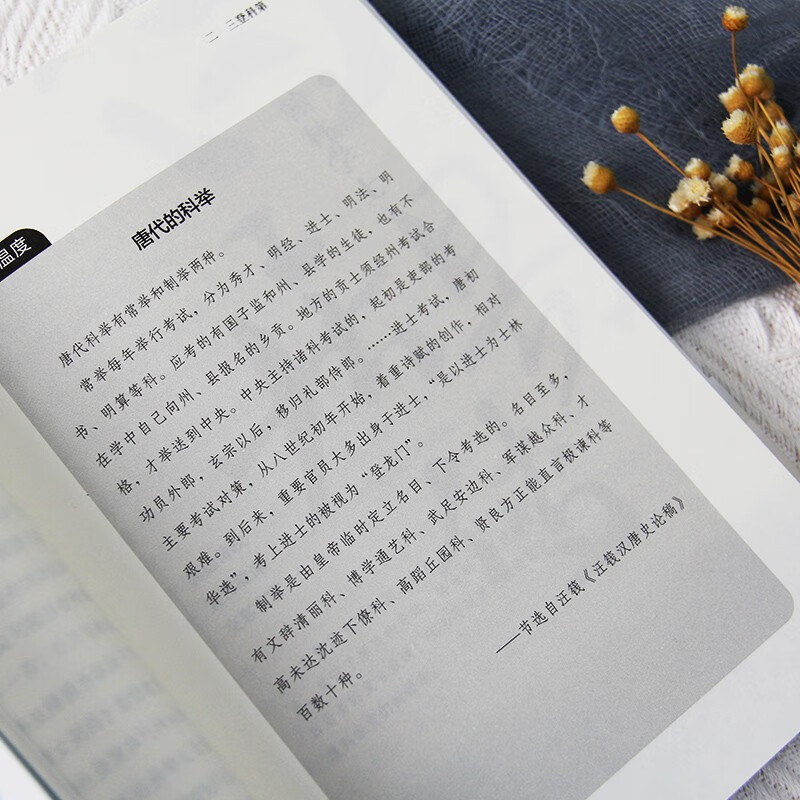 二 三登科第
温度
唐代的科举
唐代科举有常举和制举两种。
常举每年举行考试，分为秀才、明经、进士、明法、明
书、明算等科。应考的有国子监和州、县学的生徒，也有不
在学中自己向州、县报名的乡贡。地方的贡士须经州考试合
格，才举送到中央。中央主持诸科考试的，起初是吏部的考
功员外郎，玄宗以后，移归礼部侍郎。……进士考试，唐初
主要考试对策，从八世纪初年开始，着重诗赋的创作，相对
艰难。到后来，重要官员大多出身于进士，“是以进士为士林
华选”，考上进士的被视为“登龙门”。
制举是由皇帝临时定立名目、下令考选的。名目至多，
有文辞清丽科、博学通艺科、武足安边科、军谋越众科、才
高未达沈迹下僚科、高蹈丘园科、贤良方正能直言极谏科等
百数十种。
——节选自汪篯《汪篯汉唐史论稿》